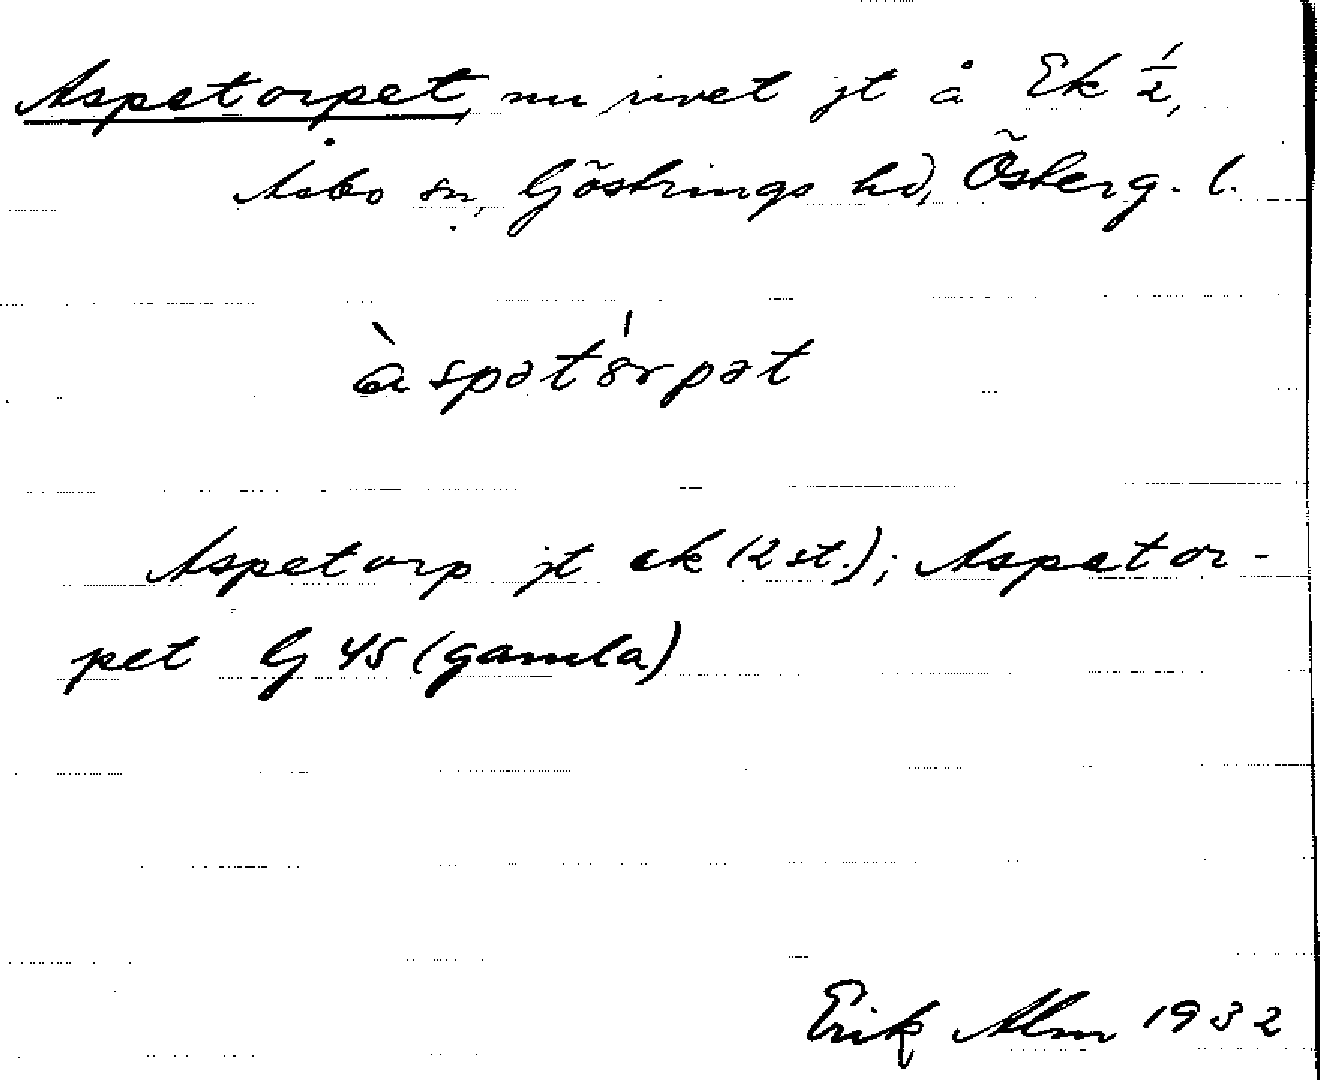 Aspetorpet, nu rivet jt å Ek 1/2,
Åsbo sn, Göstrings hd, Österg. l.
àspətórpət
Aspetorp jt ek (2 st.); Aspetor-
pet G 45 (gamla)
Erik Alm 1932